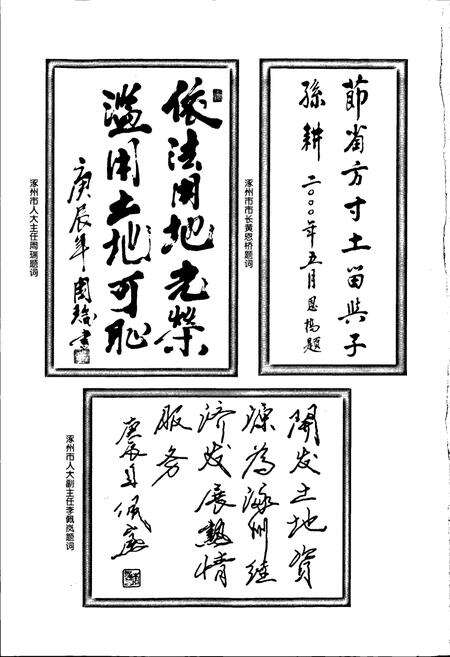 節省方寸土留與子
孫耕 二〇〇〇年五月 恩橋題
涿州市市长黄恩桥题词
依法用地光榮
滥用土地可耻
庚辰年 周瑞书
涿州市人大主任周瑞题词
開发土地資
源為涿州經
济发展熱情
服务
庚辰夏佩嵐
涿州市人大副主任李佩岚题词